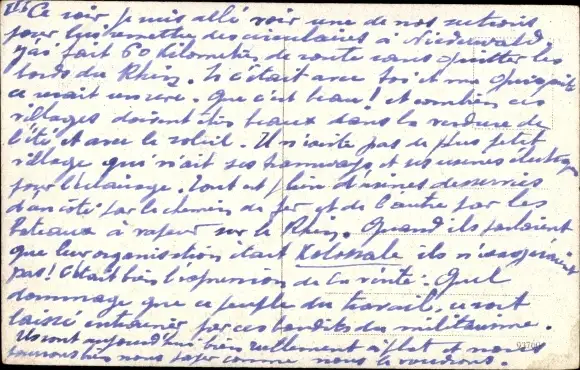 Ce soir, je suis allé voir une de nos sections
pour lui remettre des circulaires à Niederwald
J'ai fait 60 kilomètres de route sans quitter les
bords du Rhin. Si c'était avec toi et ma
ce serait encore. Que c'est beau! et combien ces
villages doivent être beaux dans la verdure de
l'été et avec le soleil. Il n'existe pas de plus petit
village qui n'ait ses tramways et ses usines électriques
pour l'éclairage. Tout est plein d'usines desservies
d'un côté par le chemin de fer et de l'autre par les
bateaux à vapeur sur le Rhin. Quand ils parlaient
que leur organisation était Kolossale ils n'exagéraient
pas! C'était bien l'expression de la vérité. Quel
dommage que ce peuple du travail, ce soit
laissé entraîner par ces bandits du militarisme.
Ils sont aujourd'hui bien réellement à plat et nous
pourrons bien nous payer comme nous le voudrons.